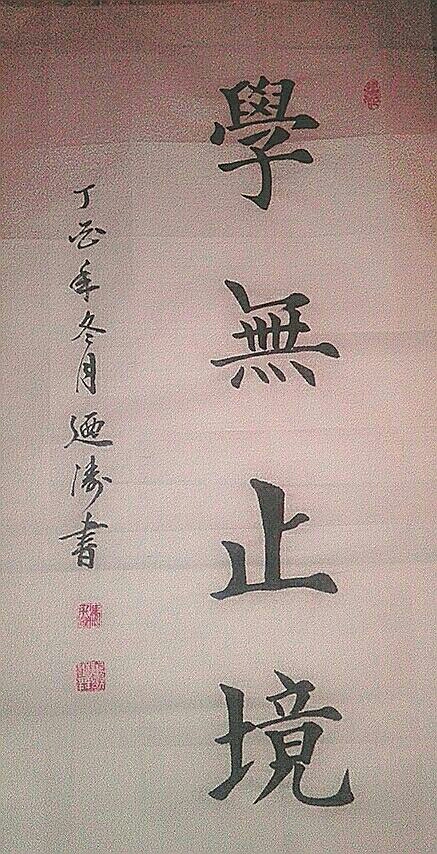 學無止境
丁酉年冬月迺涛書